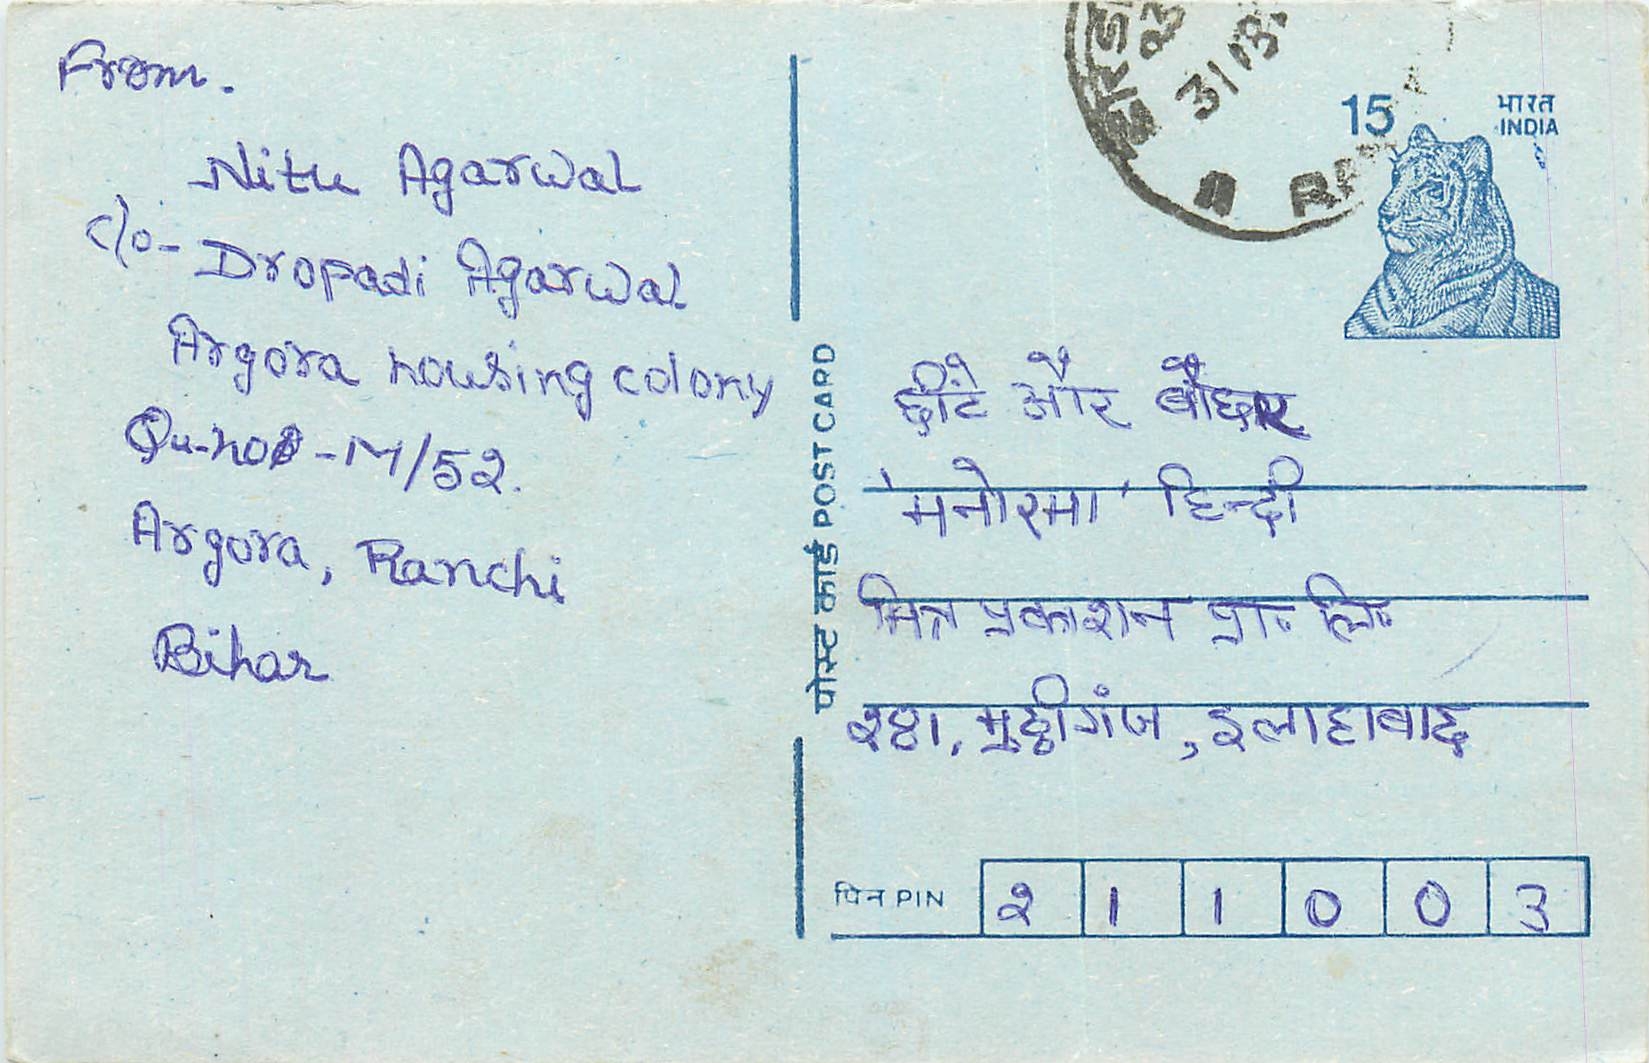 From.
Nitu Agarwal
c/o- Dropadi Agarwal
Argora housing colony
Qu-no - M/52.
Argora, Ranchi
Bihar
पोस्ट कार्ड POST CARD
31
15
भारत
INDIA
छींटे और बौछार
'मनोरमा' हिन्दी
मित्र प्रकाशन प्रा॰ लि॰
२८१, मुट्ठीगंज, इलाहाबाद
पिन PIN २ 1 1 0 0 3